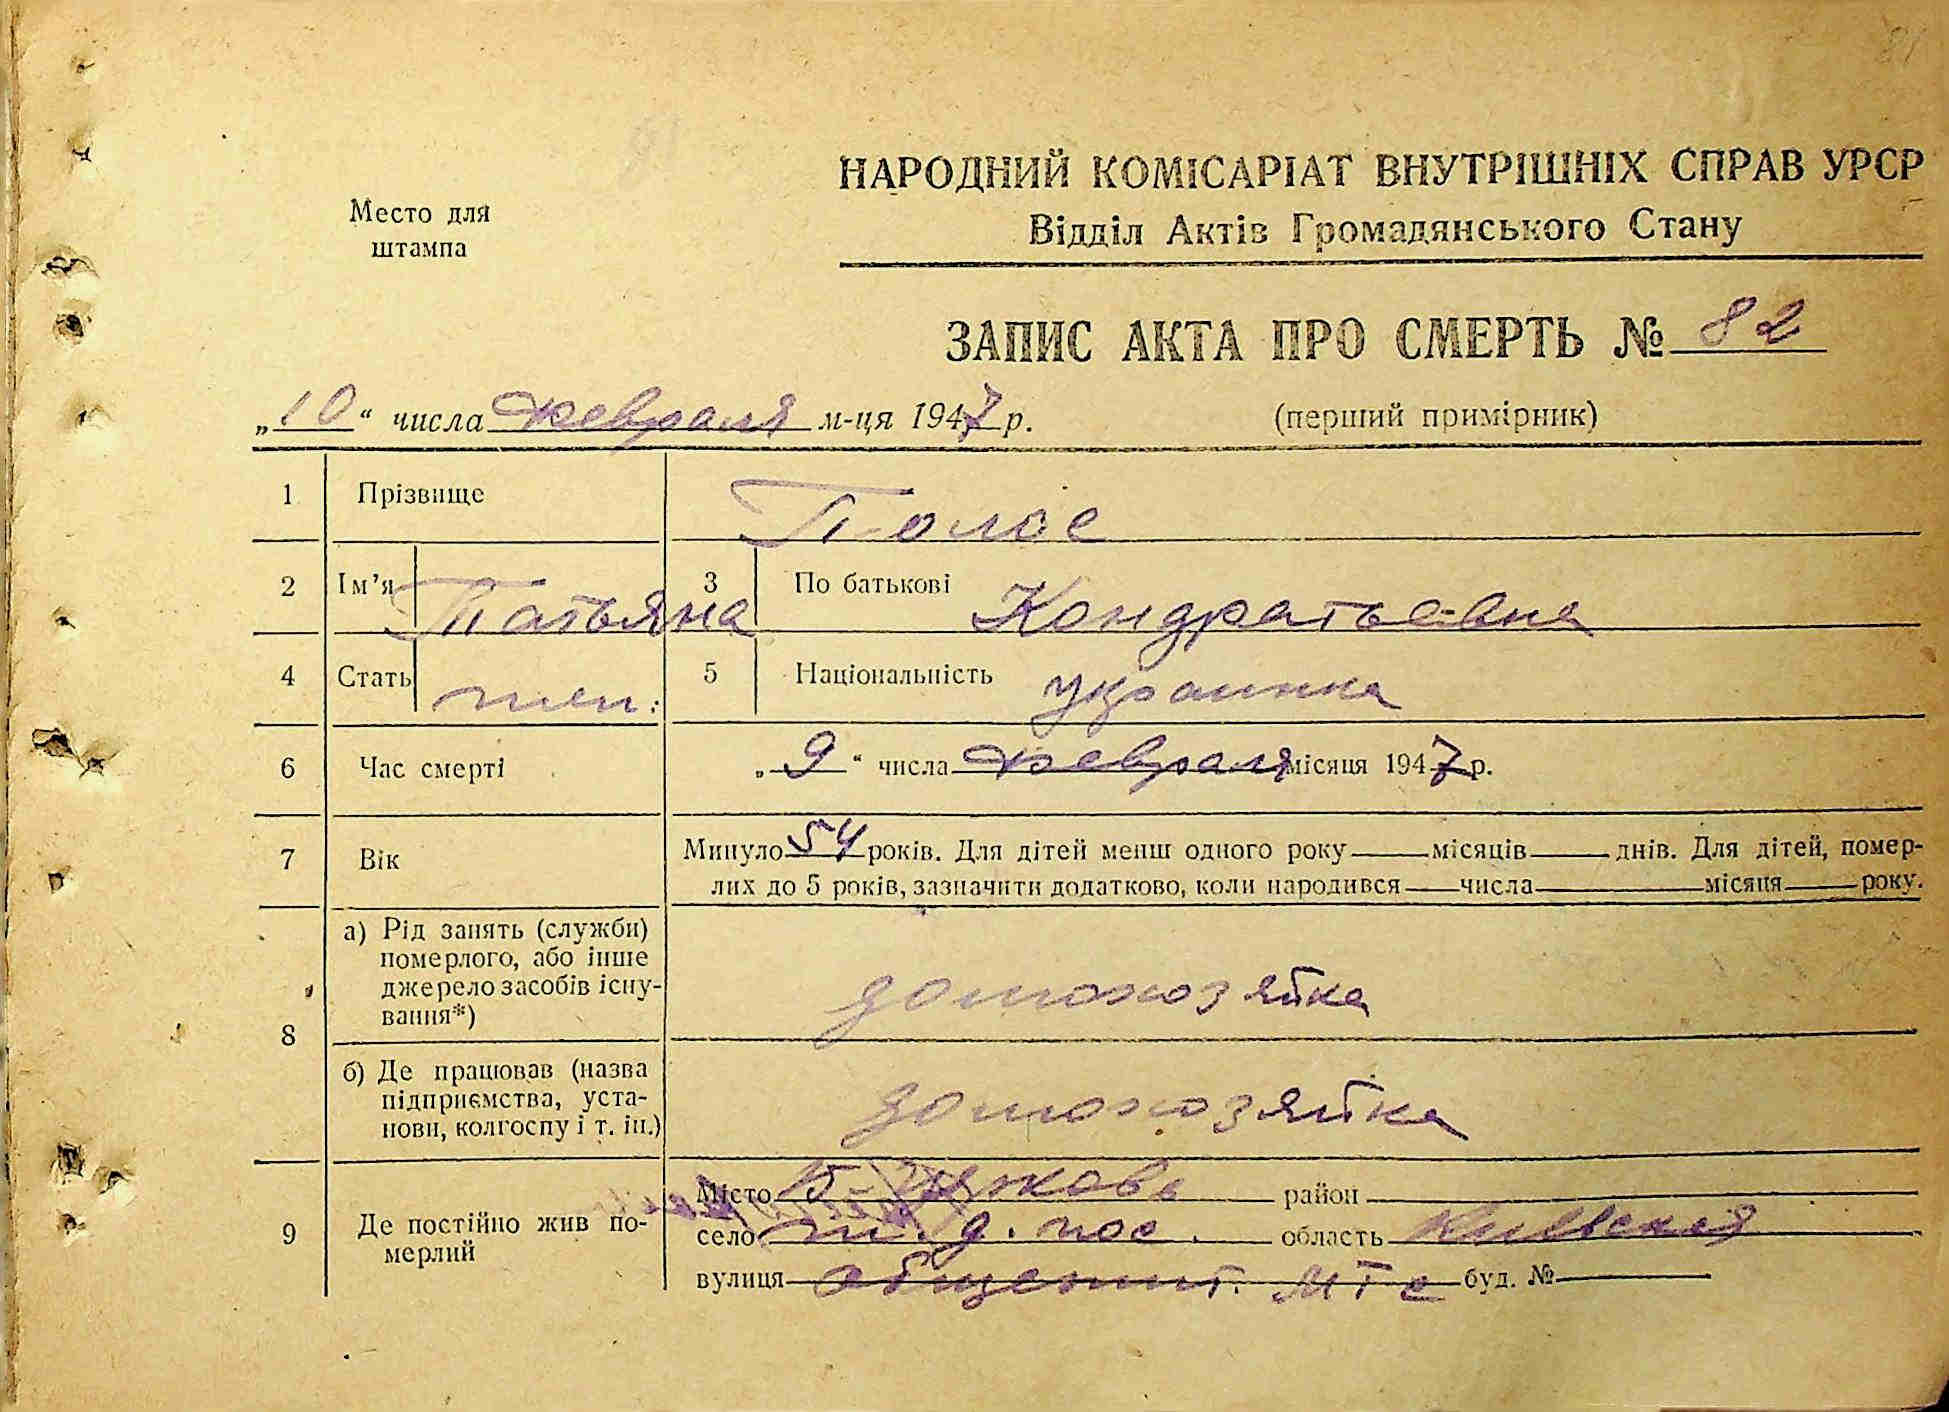 Место для
штампа
НАРОДНИЙ КОМІСАРІАТ ВНУТРІШНІХ СПРАВ УРСР
Відділ Актів Громадянського Стану
ЗАПИС АКТА ПРО СМЕРТЬ № 82
„10“ числа февраля м-ця 1947 р.
(перший примірник)
1 Прізвище Полос
2 Ім'я Татьяна 3 По батькові Кондратьевна
4 Стать жен. 5 Національність украинка
6 Час смерті „9“ числа февраля місяця 1947 р.
7 Вік Минуло 54 років. Для дітей менш одного року — місяців — днів. Для дітей, помер-
лих до 5 років, зазначити додатково, коли народився — числа — місяця — року.
8 а) Рід занять (служби)
померлого, або інше
джерело засобів існу-
вання*)
домохозяйка
б) Де працював (назва
підприємства, уста-
нови, колгоспу і т. ін.)
домохозяйка
9 Де постійно жив по-
мерлий
Місто Б- район
село ж. д. пос. область Киевская
вулиця общежит. МТС буд. №